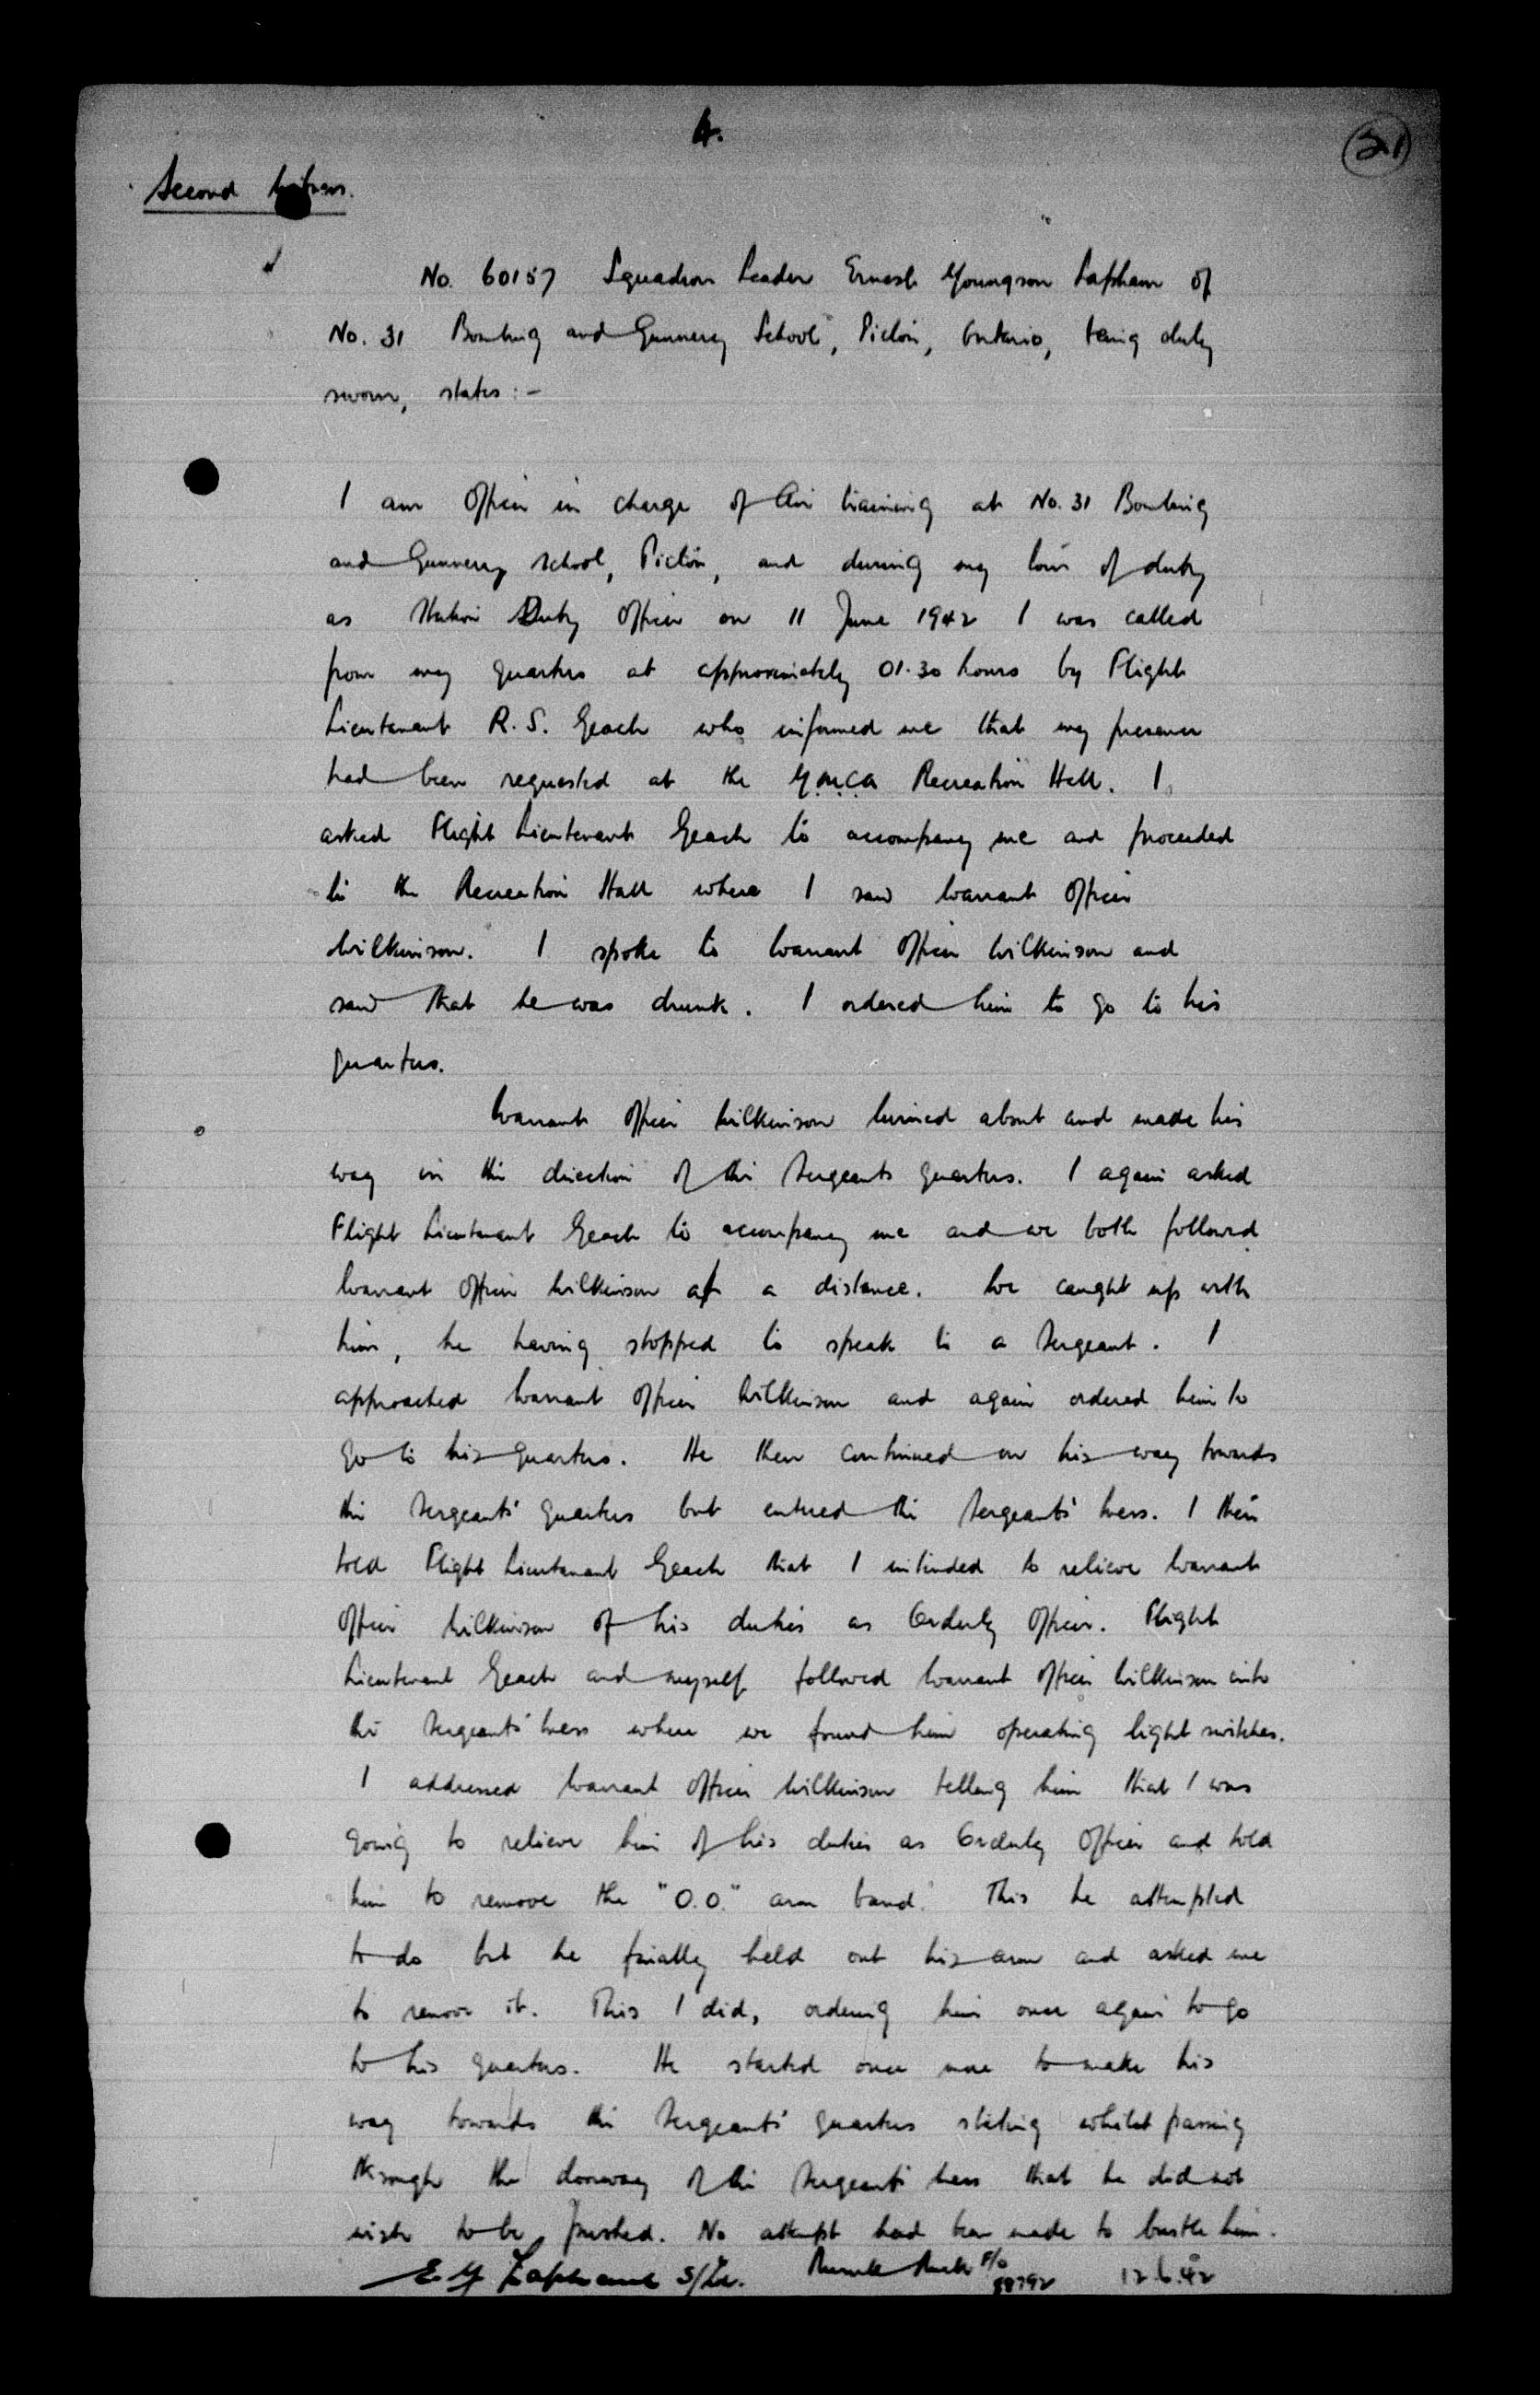 4.
21
Second Witness.
No. 60157 Squadron Leader Ernest Youngson Lapham of
No. 31 Bombing and Gunnery School, Picton, Ontario, being duly
sworn, states :-
I am Officer in charge of Air training at No. 31 Bombing
and Gunnery School, Picton, and during my tour of duty
as Station Duty Officer on 11 June 1942 I was called
from my quarters at approximately 01.30 hours by Flight
Lieutenant R.S. Geach who informed me that my presence
had been requested at the Y.M.C.A Recreation Hall. I
asked Flight Lieutenant Geach to accompany me and proceeded
to the Recreation Hall where I saw Warrant Officer
Wilkinson. I spoke to Warrant Officer Wilkinson and
saw that he was drunk. I ordered him to go to his
quarters.
Warrant Officer Wilkinson turned about and made his
way in the direction of the Sergeants quarters. I again asked
Flight Lieutenant Geach to accompany me and we both followed
Warrant Officer Wilkinson at a distance. We caught up with
him, he having stopped to speak to a Sergeant. I
approached Warrant Officer Wilkinson and again ordered him to
go to his quarters. He then continued on his way towards
the Sergeants' quarters but entered the Sergeants' Mess. I then
told Flight Lieutenant Geach that I intended to relieve Warrant
Officer Wilkinson of his duties as Orderly Officer. Flight
Lieutenant Geach and myself followed Warrant Officer Wilkinson into
the Sergeants' Mess where we found him operating light switches.
I addressed Warrant Officer Wilkinson telling him that I was
going to relieve him of his duties as Orderly Officer and told
him to remove the "O.O." arm band. This he attempted
to do but he finally held out his arm and asked me
to remove it. This I did, ordering him once again to go
to his quarters. He started once more to make his
way towards the Sergeants' quarters stating whilst passing
through the doorway of the Sergeants' Mess that he did not
wish to be pushed. No attempt had been made to bustle him.
E Y Lapham S/Ldr. F/O 12.6.42